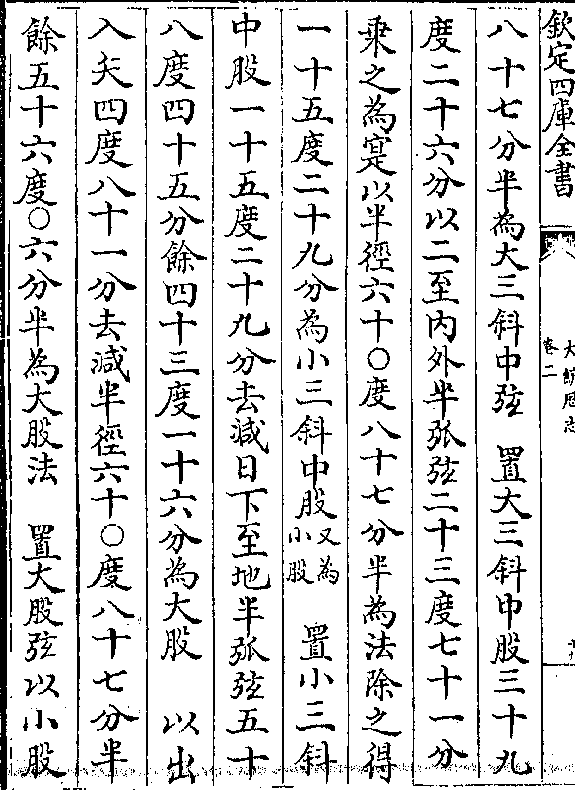 欽定四庫全書
卷二
八十七分半為大三斜中弦　置大三斜中股三十九
度二十六分以二至內外半弧弦二十三度七十一分
乗之為寔以半徑六十○度八十七分半為法除之得
一十五度二十九分為小三斜中股又為小股　置小三斜
中股一十五度二十九分去減日下至地半弧弦五十
八度四十五分餘四十三度一十六分為大股　以出
入矢四度八十一分去減半徑六十○度八十七分半
餘五十六度○六分半為大股法　置大股弦以小股